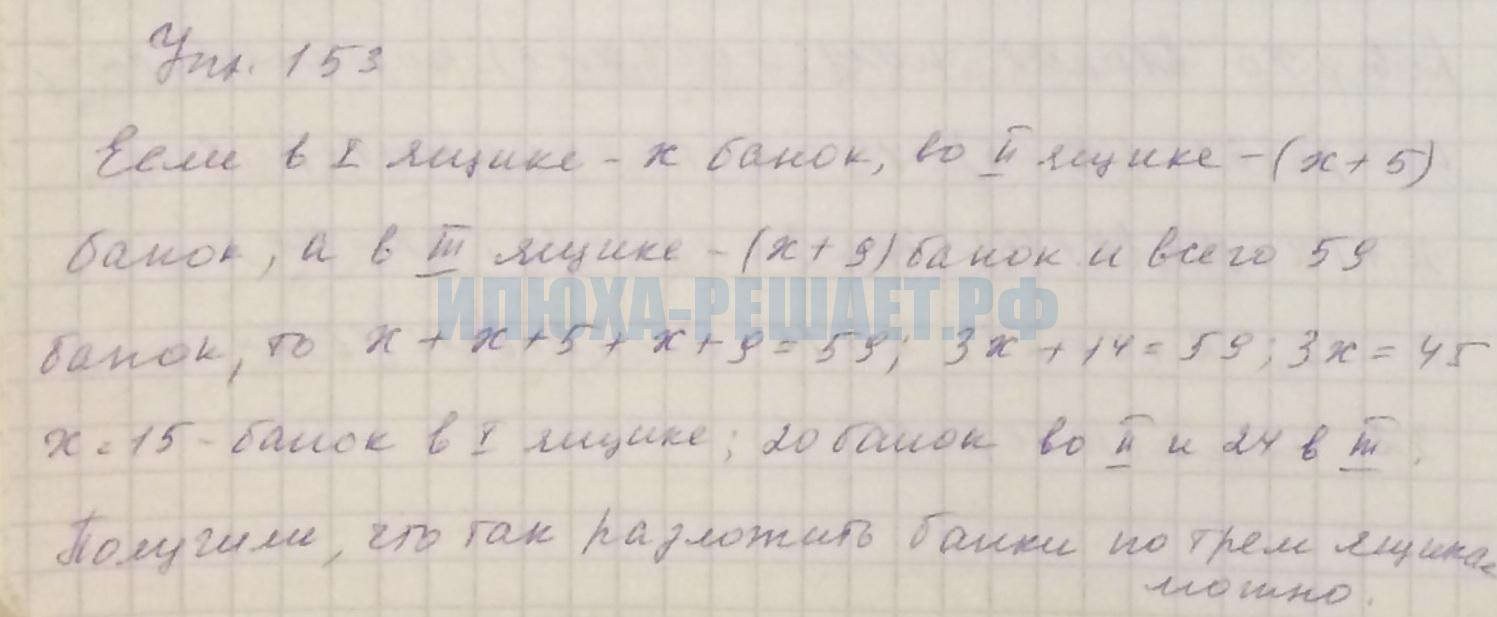 Упр. 153
Если в I ящике - x банок, во II ящике - (x + 5)
банок, а в III ящике - (x + 9) банок и всего 59
ИЛЮХА-РЕШАЕТ.РФ
банок, то x + x + 5 + x + 9 = 59; 3x + 14 = 59; 3x = 45
x = 15 - банок в I ящике; 20 банок во II и 24 в III.
Получили, что так разложить банки по трем ящикам
можно.